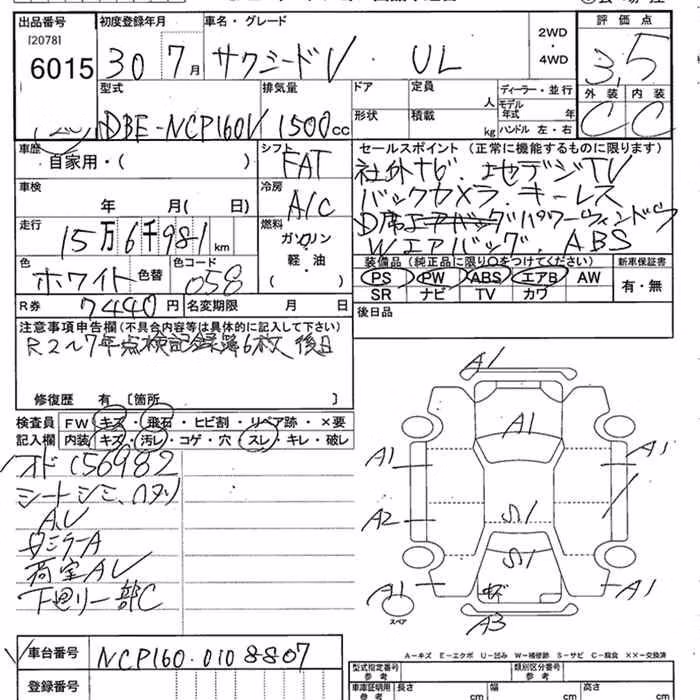 出品番号 初度登録年月 車名・グレード 2WD ・ 4WD 評価点
[2078]
6015 30 7月 サクシードV UL 3,5
外装 内装
C C
型式 排気量 ドア 定員 人 ディーラー・並行
DBE-NCP160V 1500cc 形状 積載 kg モデル年式 年
ハンドル 左・右
車歴 シフト セールスポイント(正常に機能するものに限ります)
自家用・( ) FAT 社外ナビ.地デジTV
車検 冷房 バックカメラ.キーレス
年 月( 日) A/C D席エアバッグパワーウィンドウ
走行 燃料 Wエアバッグ. ABS
15万6千981km ガソリン
軽・油
( )
色 色替 色コード 装備品(純正品に限り○をつけてください) 新車保証書
ホワイト 058 PS PW ABS エアB AW 有・無
SR ナビ TV カワ
R券 7440円 名変期限 月 日 後日品
注意事項申告欄(不具合内容等は具体的に記入して下さい)
R2〜7年点検記録簿6枚 後日
修復歴 有 [箇所 ]
検査員 FW キズ・飛石・ヒビ割・リペア跡・×要
記入欄 内装 キズ・汚レ・コゲ・穴・スレ・キレ・破レ
オド156982
シートシミ、
AU
ダミラーA
荷室AU
下廻リ一部C
A1
A1
A1 A1
A2 S1
S1
A1 A1
スペア A3
A-キズ E-エクボ U-凹み W-補修跡 S-サビ C-腐食 XX-交換済
車台番号 NCP160-0108807
登録番号
型式指定番号 参考 類別区分番号 参考
車庫証明用 参考 長さ cm 幅 cm 高さ cm